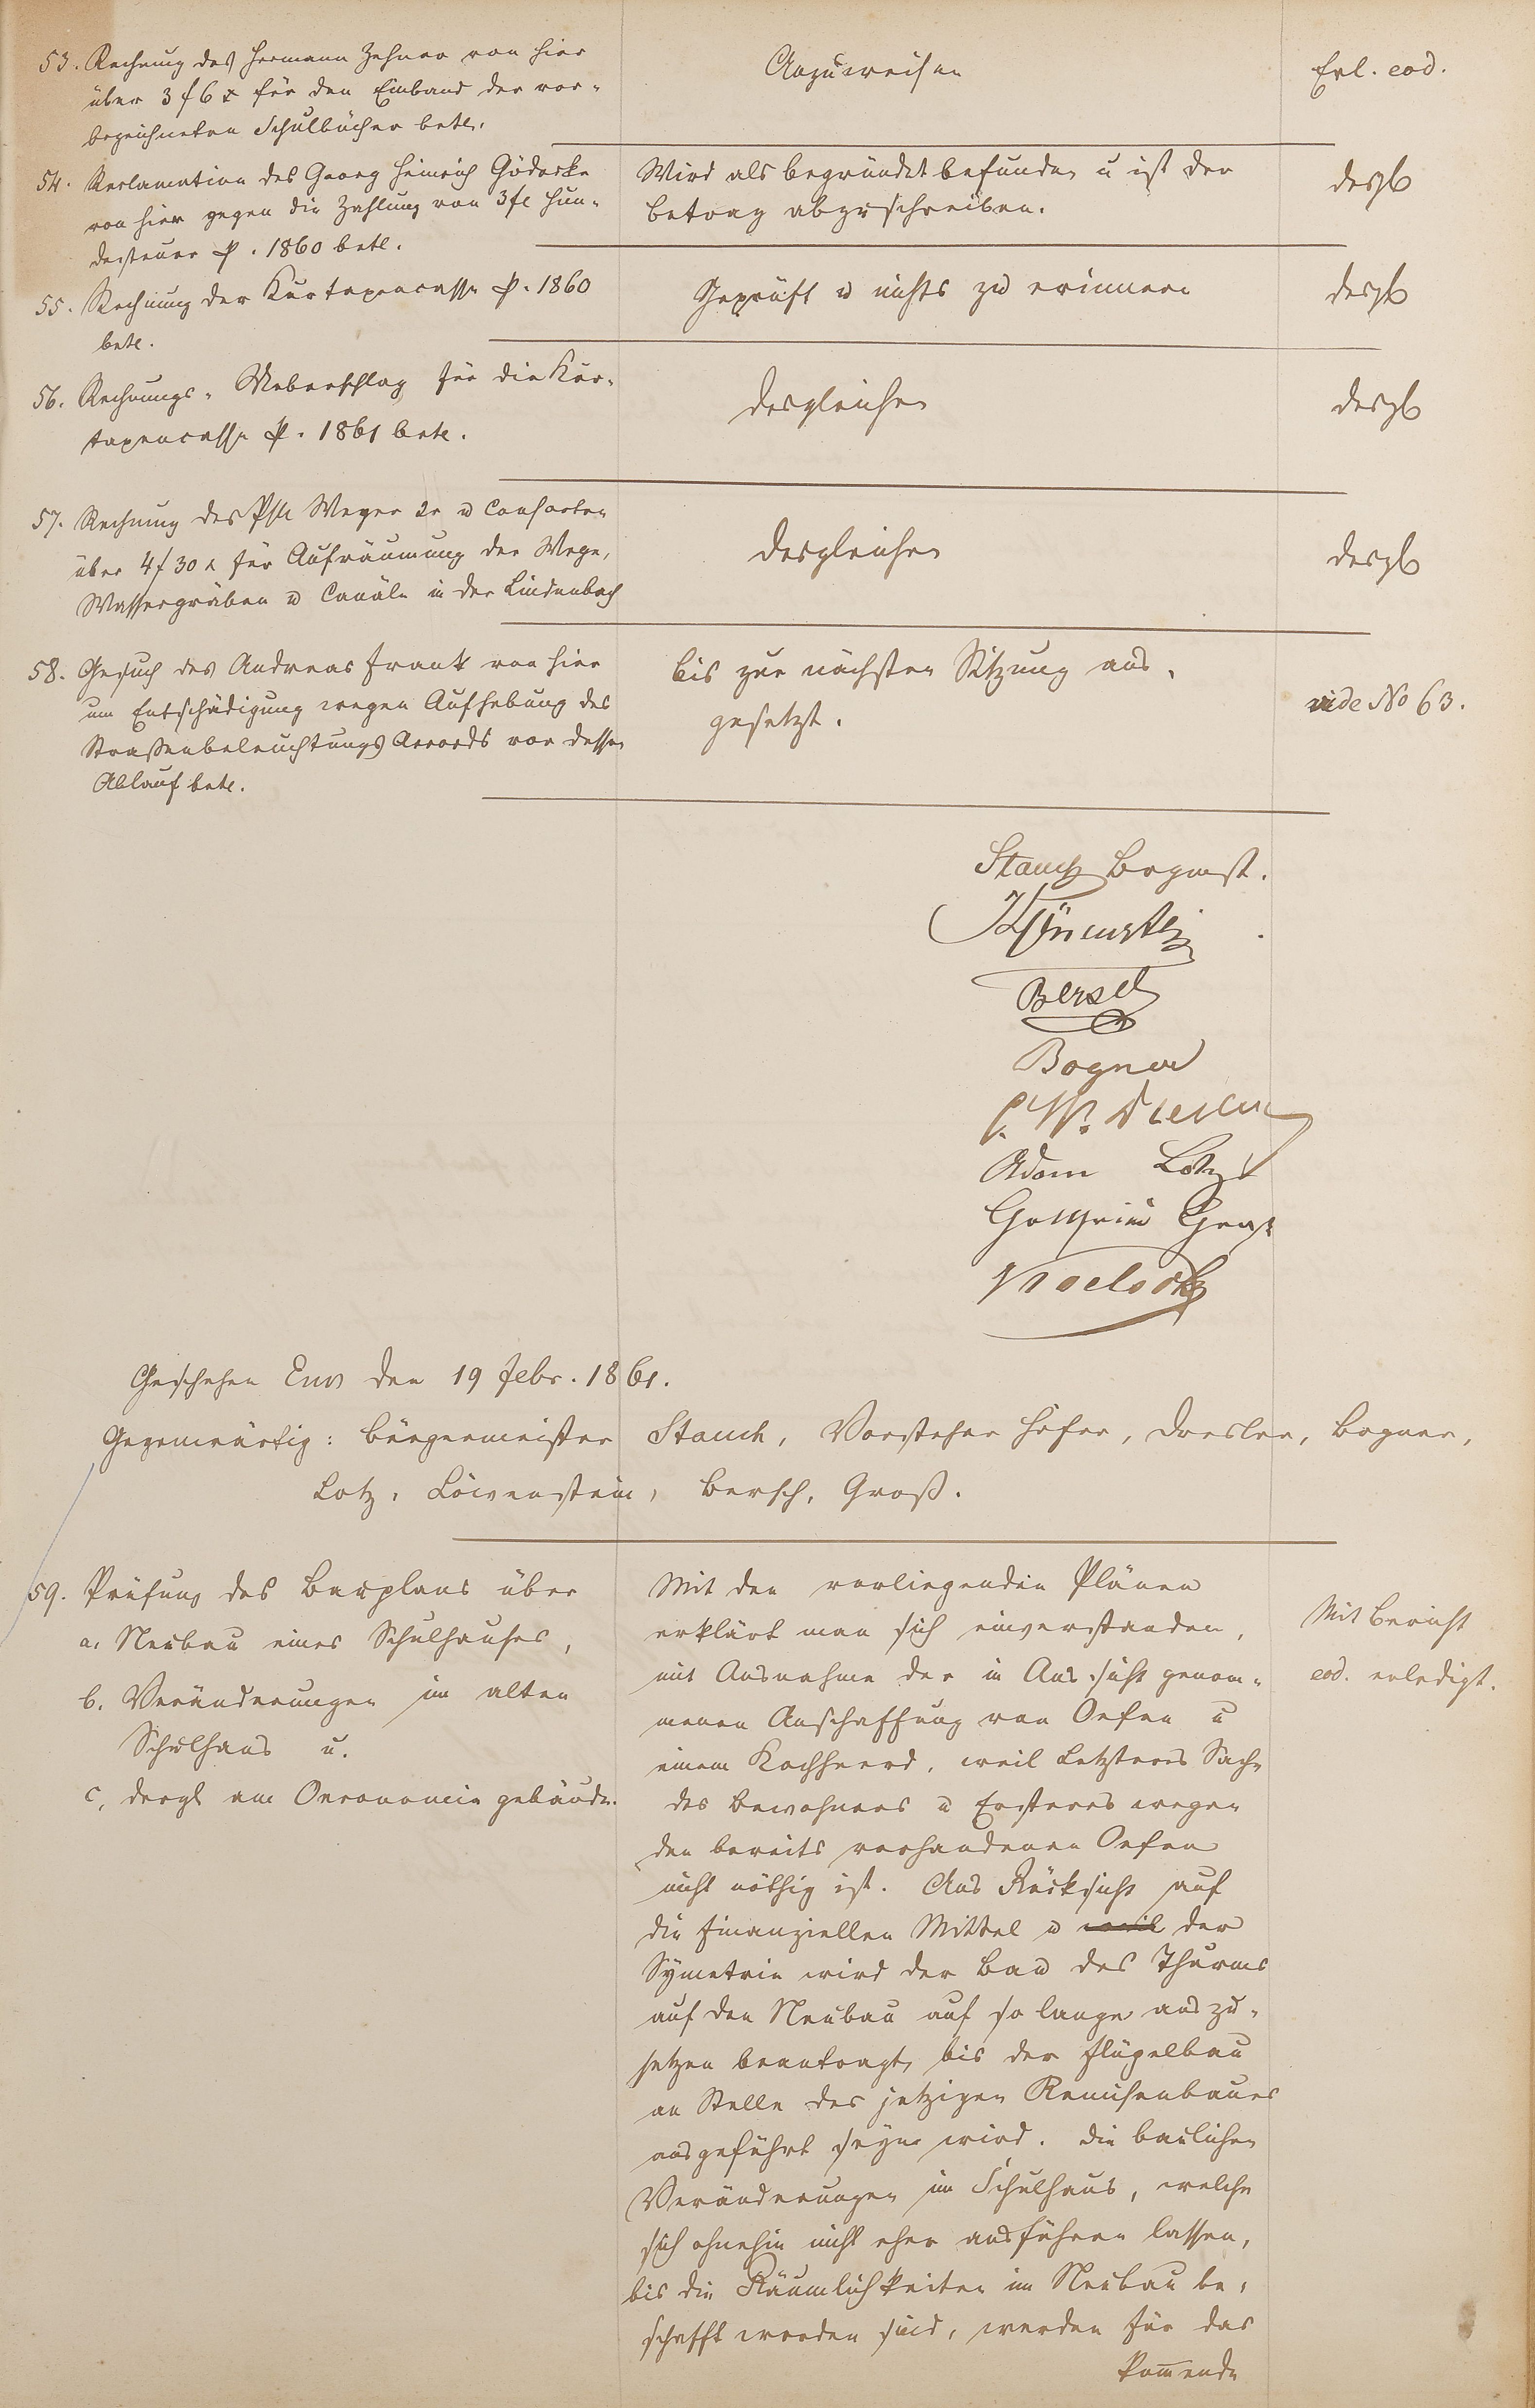 53. Rechnung des Hermann Zehner von hier
über 3 f 6 x für den Einband der vor-
bezeichneten Schulbücher betr.
Anzuweisen
Erl. eod.
54. Reclamation des Georg Heinrich Gödecke
von hier gegen die Zahlung von 3 fl Hun-
desteuer p. 1860 betr.
Wird als begründet befunden u ist der
Betrag abzuschreiben.
desgl
55. Rechnung der Kurtaxencasse p. 1860
betr.
Geprüft u nichts zu erinnern
desgl
56. Rechnungs-Ueberschlag für die Kur-
taxencasse p. 1861 betr.
desgleichen
desgl
57. Rechnung des Weyer 2r u Consorten
über 4 f 30 x für Aufräumung der Wege,
Wassergräben u Canäle in der Lindenbach
desgleichen
desgl
58. Gesuch des Andreas Frank von hier
um Entschädigung wegen Aufhebung des
Straßenbeleuchtungs Accords vor dessen
Ablauf betr.
bis zur nächsten Sitzung aus-
gesetzt.
vide No 63.
Stauch Brgmst.
Bersch
Bogner
Adam Lotz
Geschehen Ems den 19 Febr. 1861.
Gegenwärtig: Bürgermeister Stauch, Vorsteher Höfer, Dresler, Bogner,
Lotz, Löwenstein, Bersch, Groß.
59. Prüfung des Bauplans über
a. Neubau eines Schulhauses,
b. Veränderungen im alten
Schulhaus u.
c, dergl am Oeconomiegebäude.
Mit den vorliegenden Plänen
erklärt man sich einverstanden,
mit Ausnahme der in Aussicht genom-
menen Anschaffung von Oefen u
einem Kochheerd, weil Letzteres Sache
des Bewohners u Ersteres wegen
den bereits vorhandenen Oefen
nicht nöthig ist. Aus Rücksicht auf
die finanziellen Mittel u weil der
Symetrie wird der Bau des Thurms
auf den Neubau auf so lange auszu-
setzen beantragt, bis der Flügelbau
an Stelle des jetzigen Remisenbaues
ausgeführt seyn wird. Die baulichen
Veränderungen im Schulhaus, welche
sich ohnehin nicht eher ausführen lassen,
bis die Räumlichkeiten im Neubau be-
schafft worden sind, werden für das
kommende
Mit Bericht
eod. erledigt.